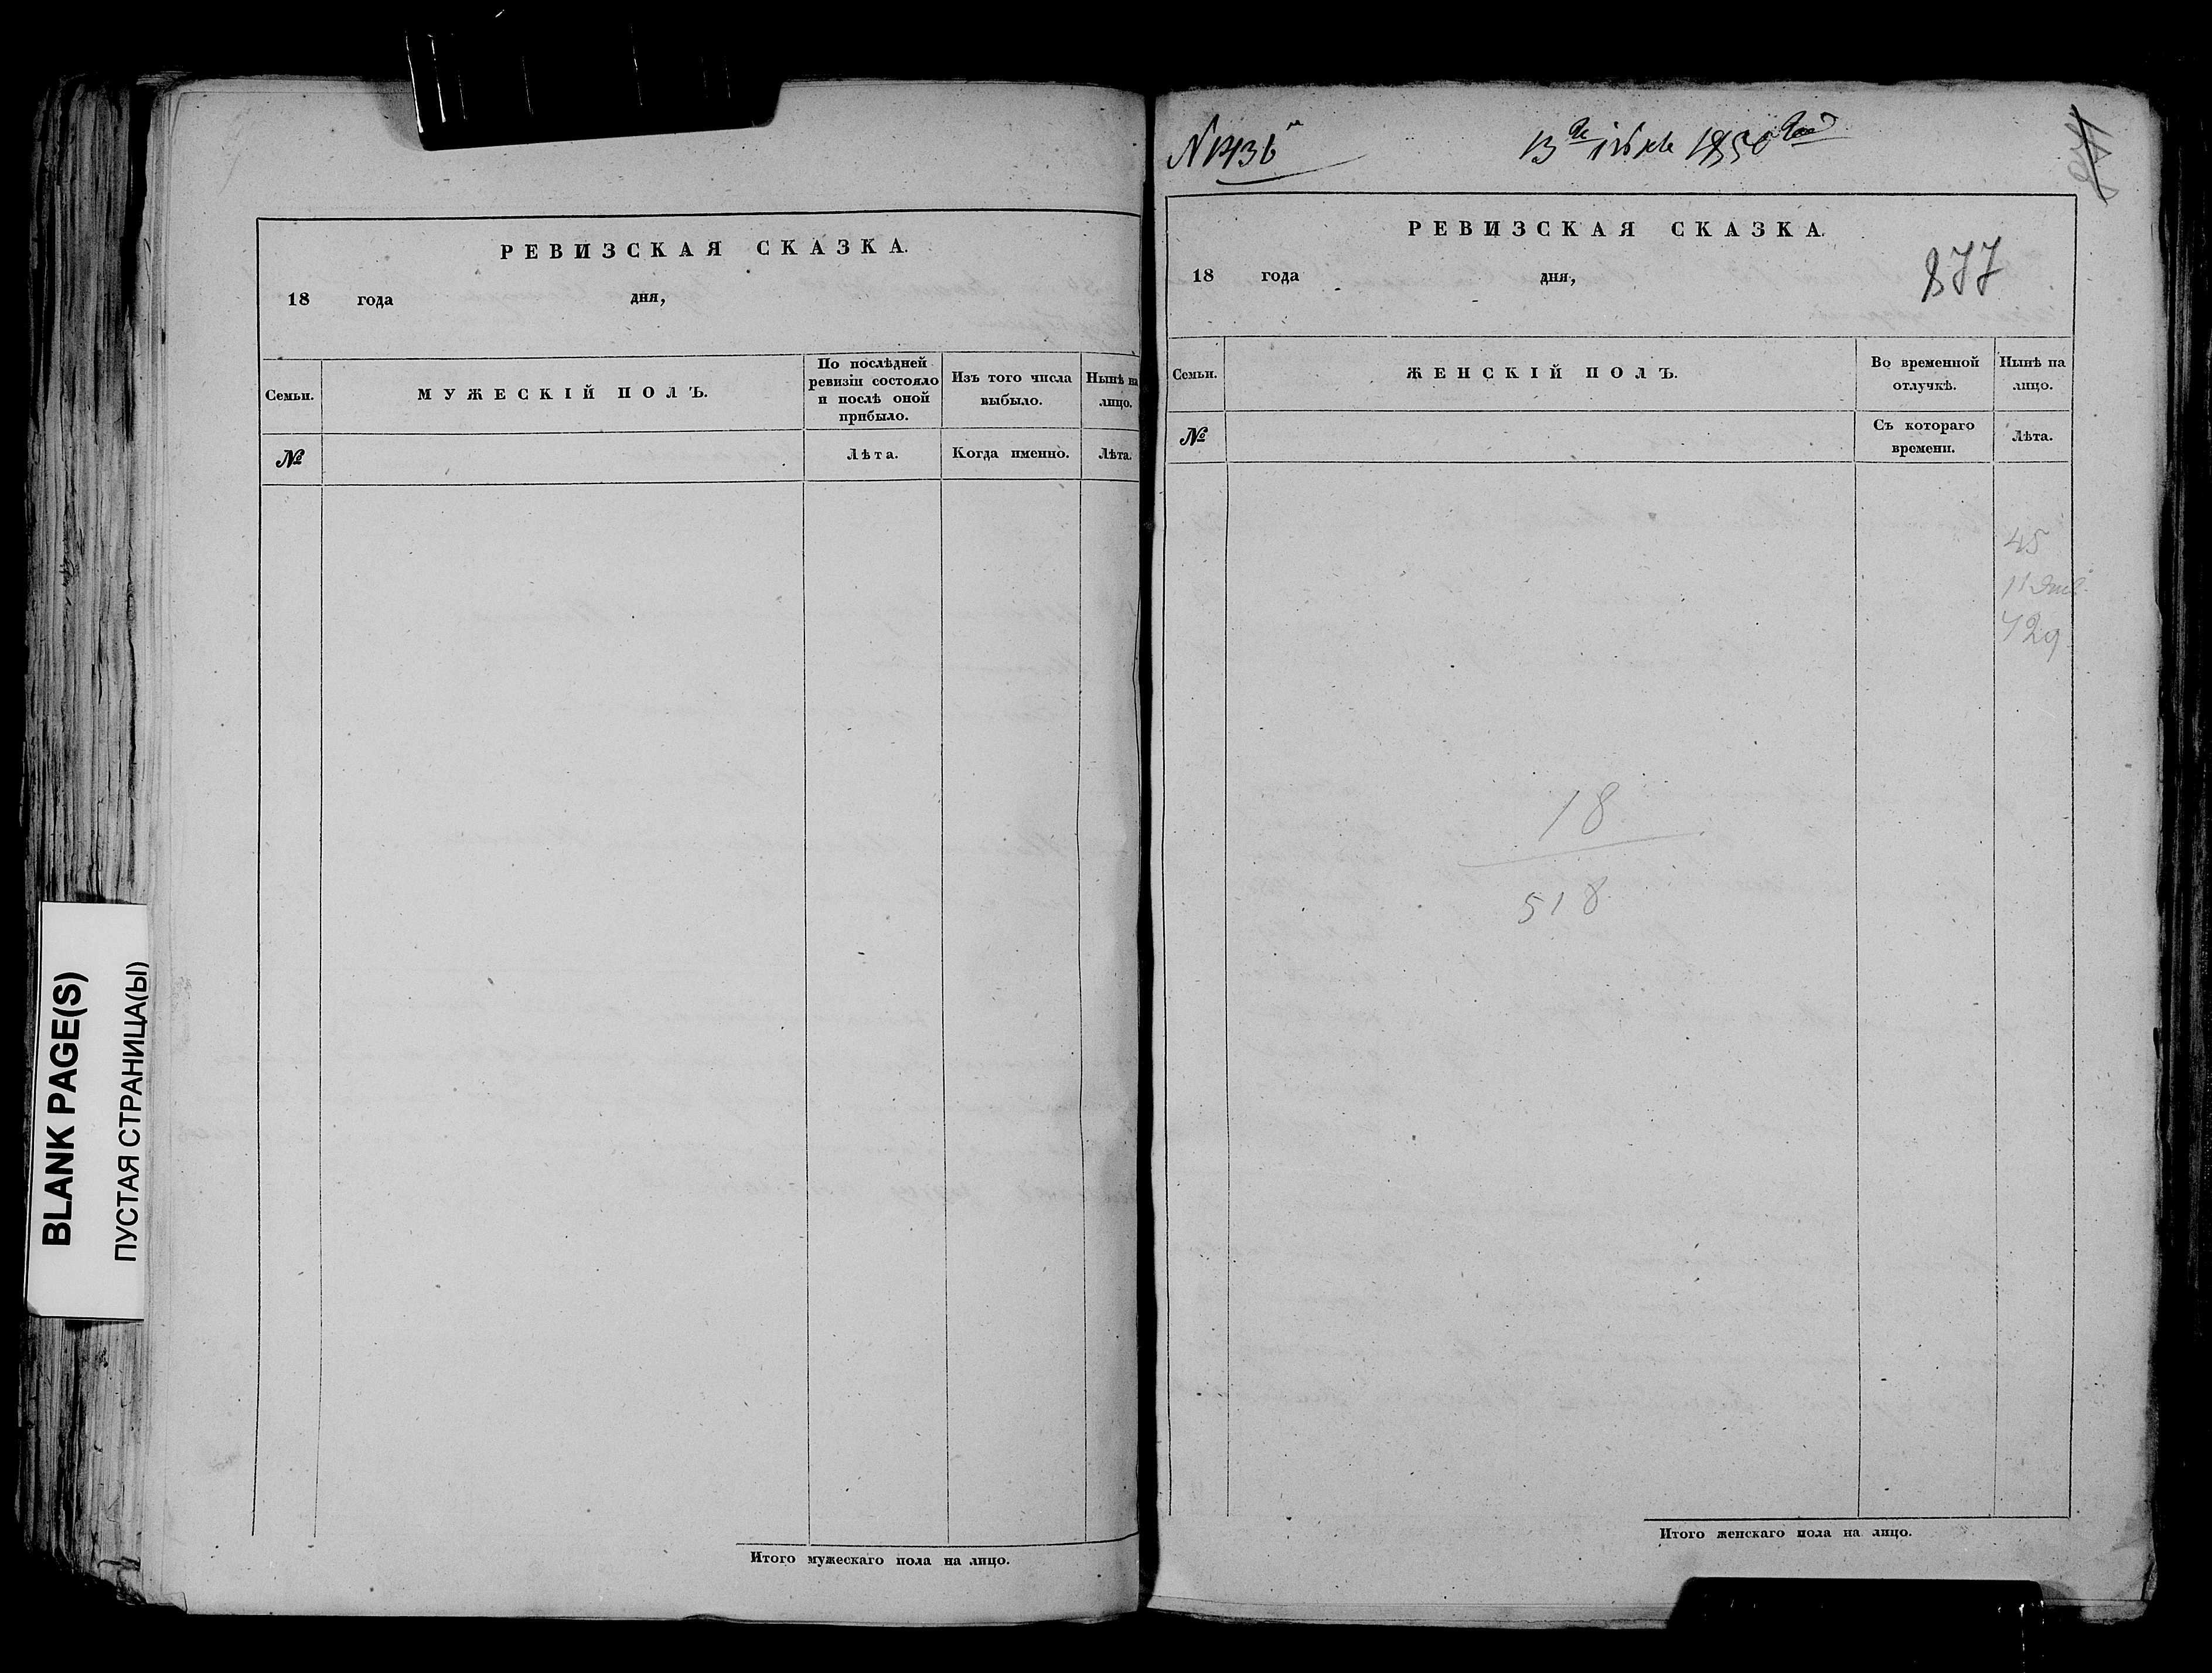 РЕВИЗСКАЯ СКАЗКА.
18 года дня,
Семьи.
МУЖЕСКІЙ ПОЛЪ.
По послѣдней
ревизіи состояло
и послѣ оной
прибыло.
Изъ того числа
выбыло.
Нынѣ на
лицо.
№
Лѣта.
Когда именно.
Лѣта.
Итого мужескаго пола на лицо.
13 1850
РЕВИЗСКАЯ СКАЗКА.
18 года дня,
877
Семьи.
ЖЕНСКІЙ ПОЛЪ.
Во временной
отлучкѣ.
Нынѣ на
лицо.
№
Съ котораго
времени.
Лѣта.
45
11
429
18
518
Итого женскаго пола на лицо.
BLANK PAGE(S)
ПУСТАЯ СТРАНИЦА(Ы)